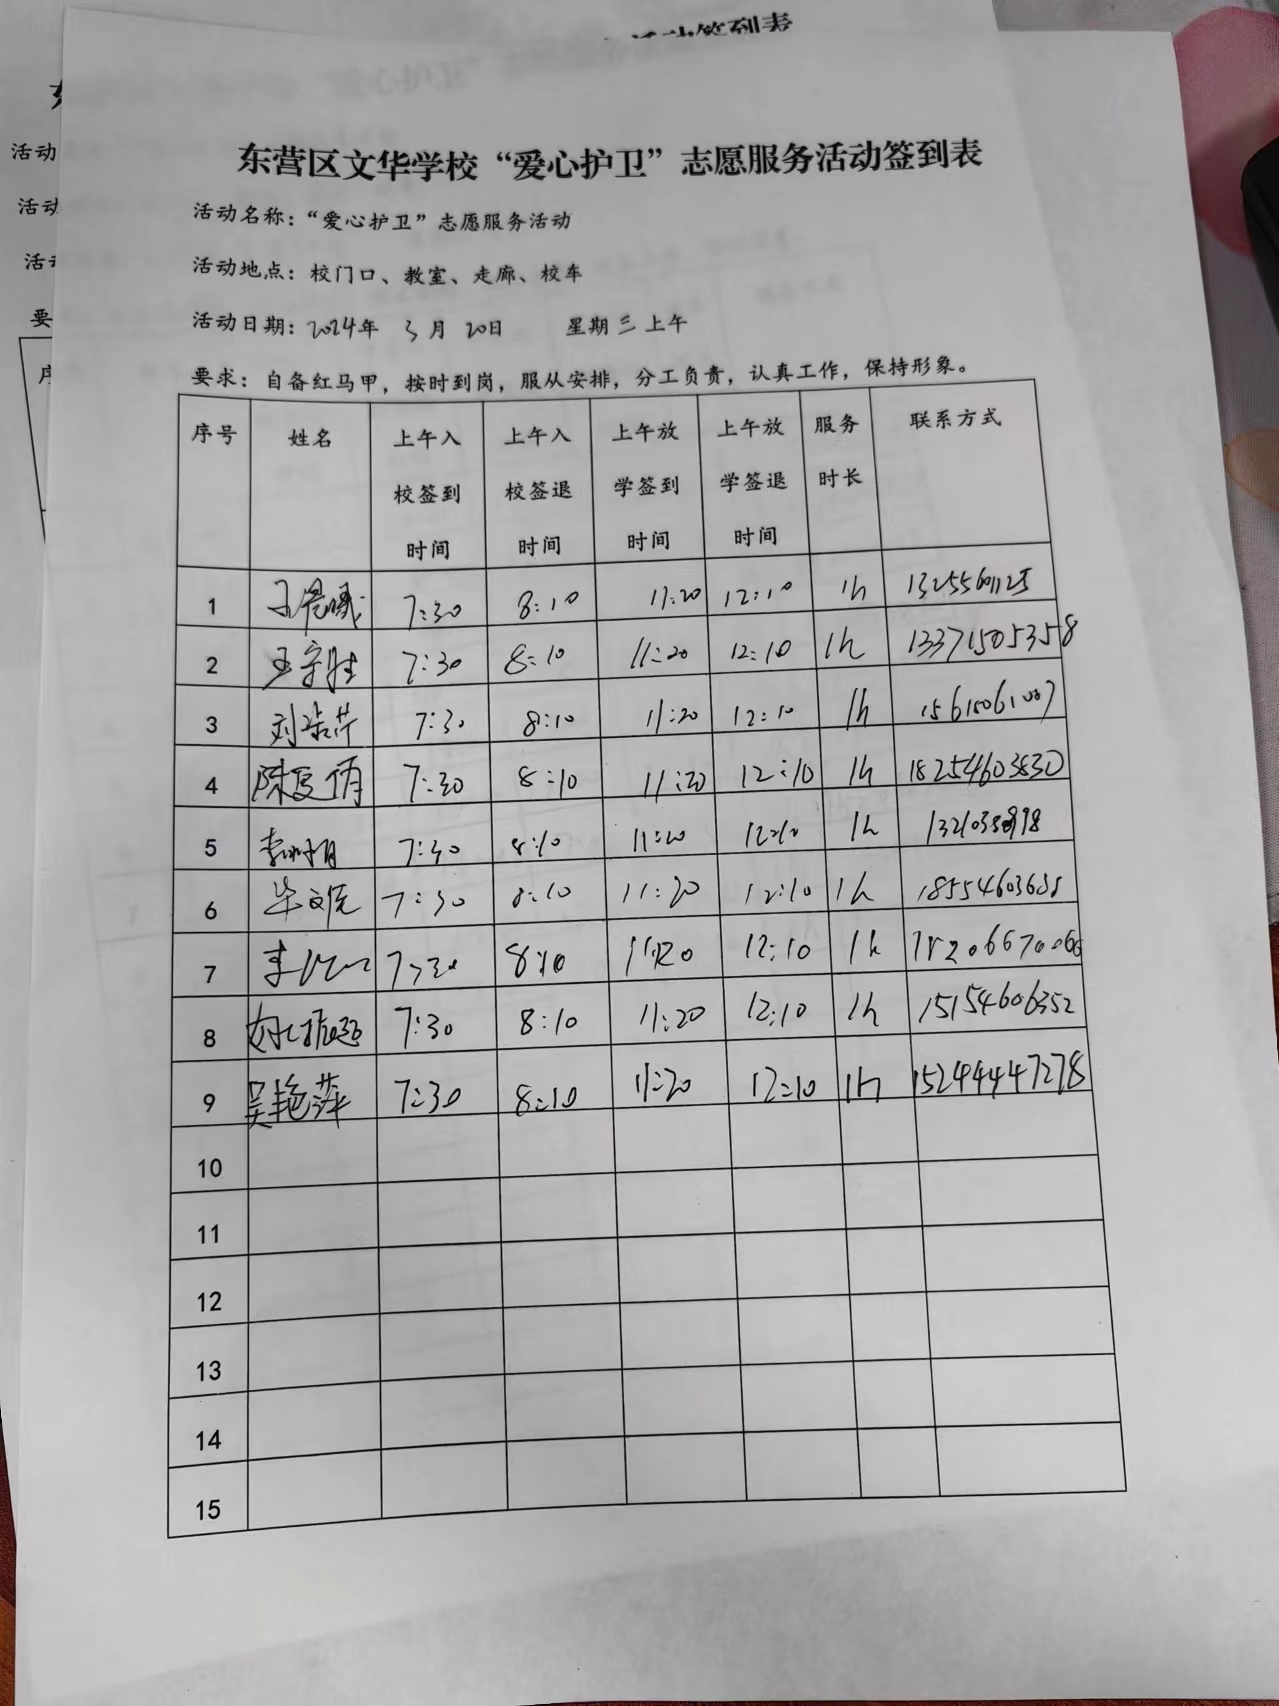 活动签到表
活动
活动
活动
要
序
东营区文华学校“爱心护卫”志愿服务活动签到表
活动名称：“爱心护卫”志愿服务活动
活动地点：校门口、教室、走廊、校车
活动日期：2024年 3月 20日 星期三上午
要求：自备红马甲，按时到岗，服从安排，分工负责，认真工作，保持形象。
序号 姓名 上午入校签到时间 上午入校签退时间 上午放学签到时间 上午放学签退时间 服务时长 联系方式
1 7:30 8:10 11:20 12:10 1h
2 7:30 8:10 11:20 12:10 1h 13371505358
3 7:30 8:10 11:20 12:10 1h 15615061007
4 7:30 8:10 11:20 12:10 1h 18254603830
5 7:30 8:10 11:20 12:10 1h
6 7:30 8:10 11:20 12:10 1h
7 7:30 8:10 11:20 12:10 1h 18206670066
8 7:30 8:10 11:20 12:10 1h 15154606352
9 吴艳萍 7:30 8:10 11:20 12:10 1h 15244447278
10
11
12
13
14
15